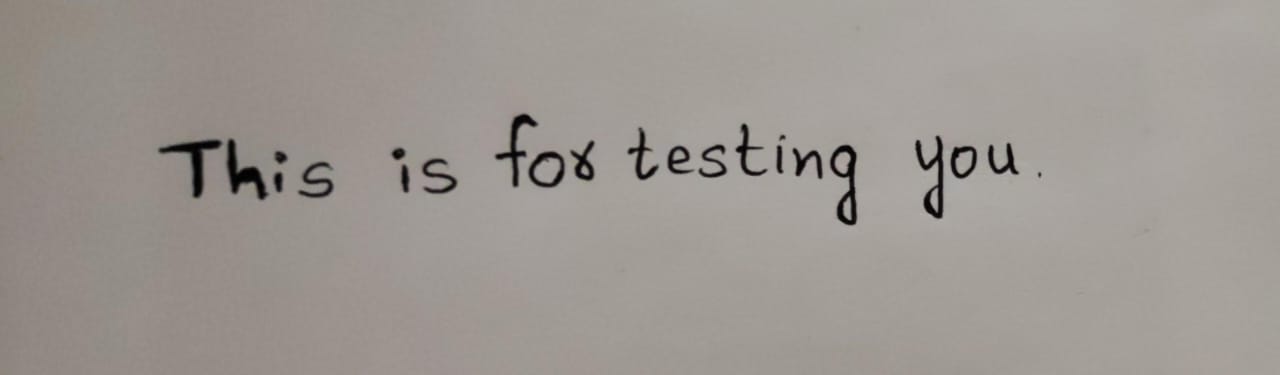 This is for testing you.